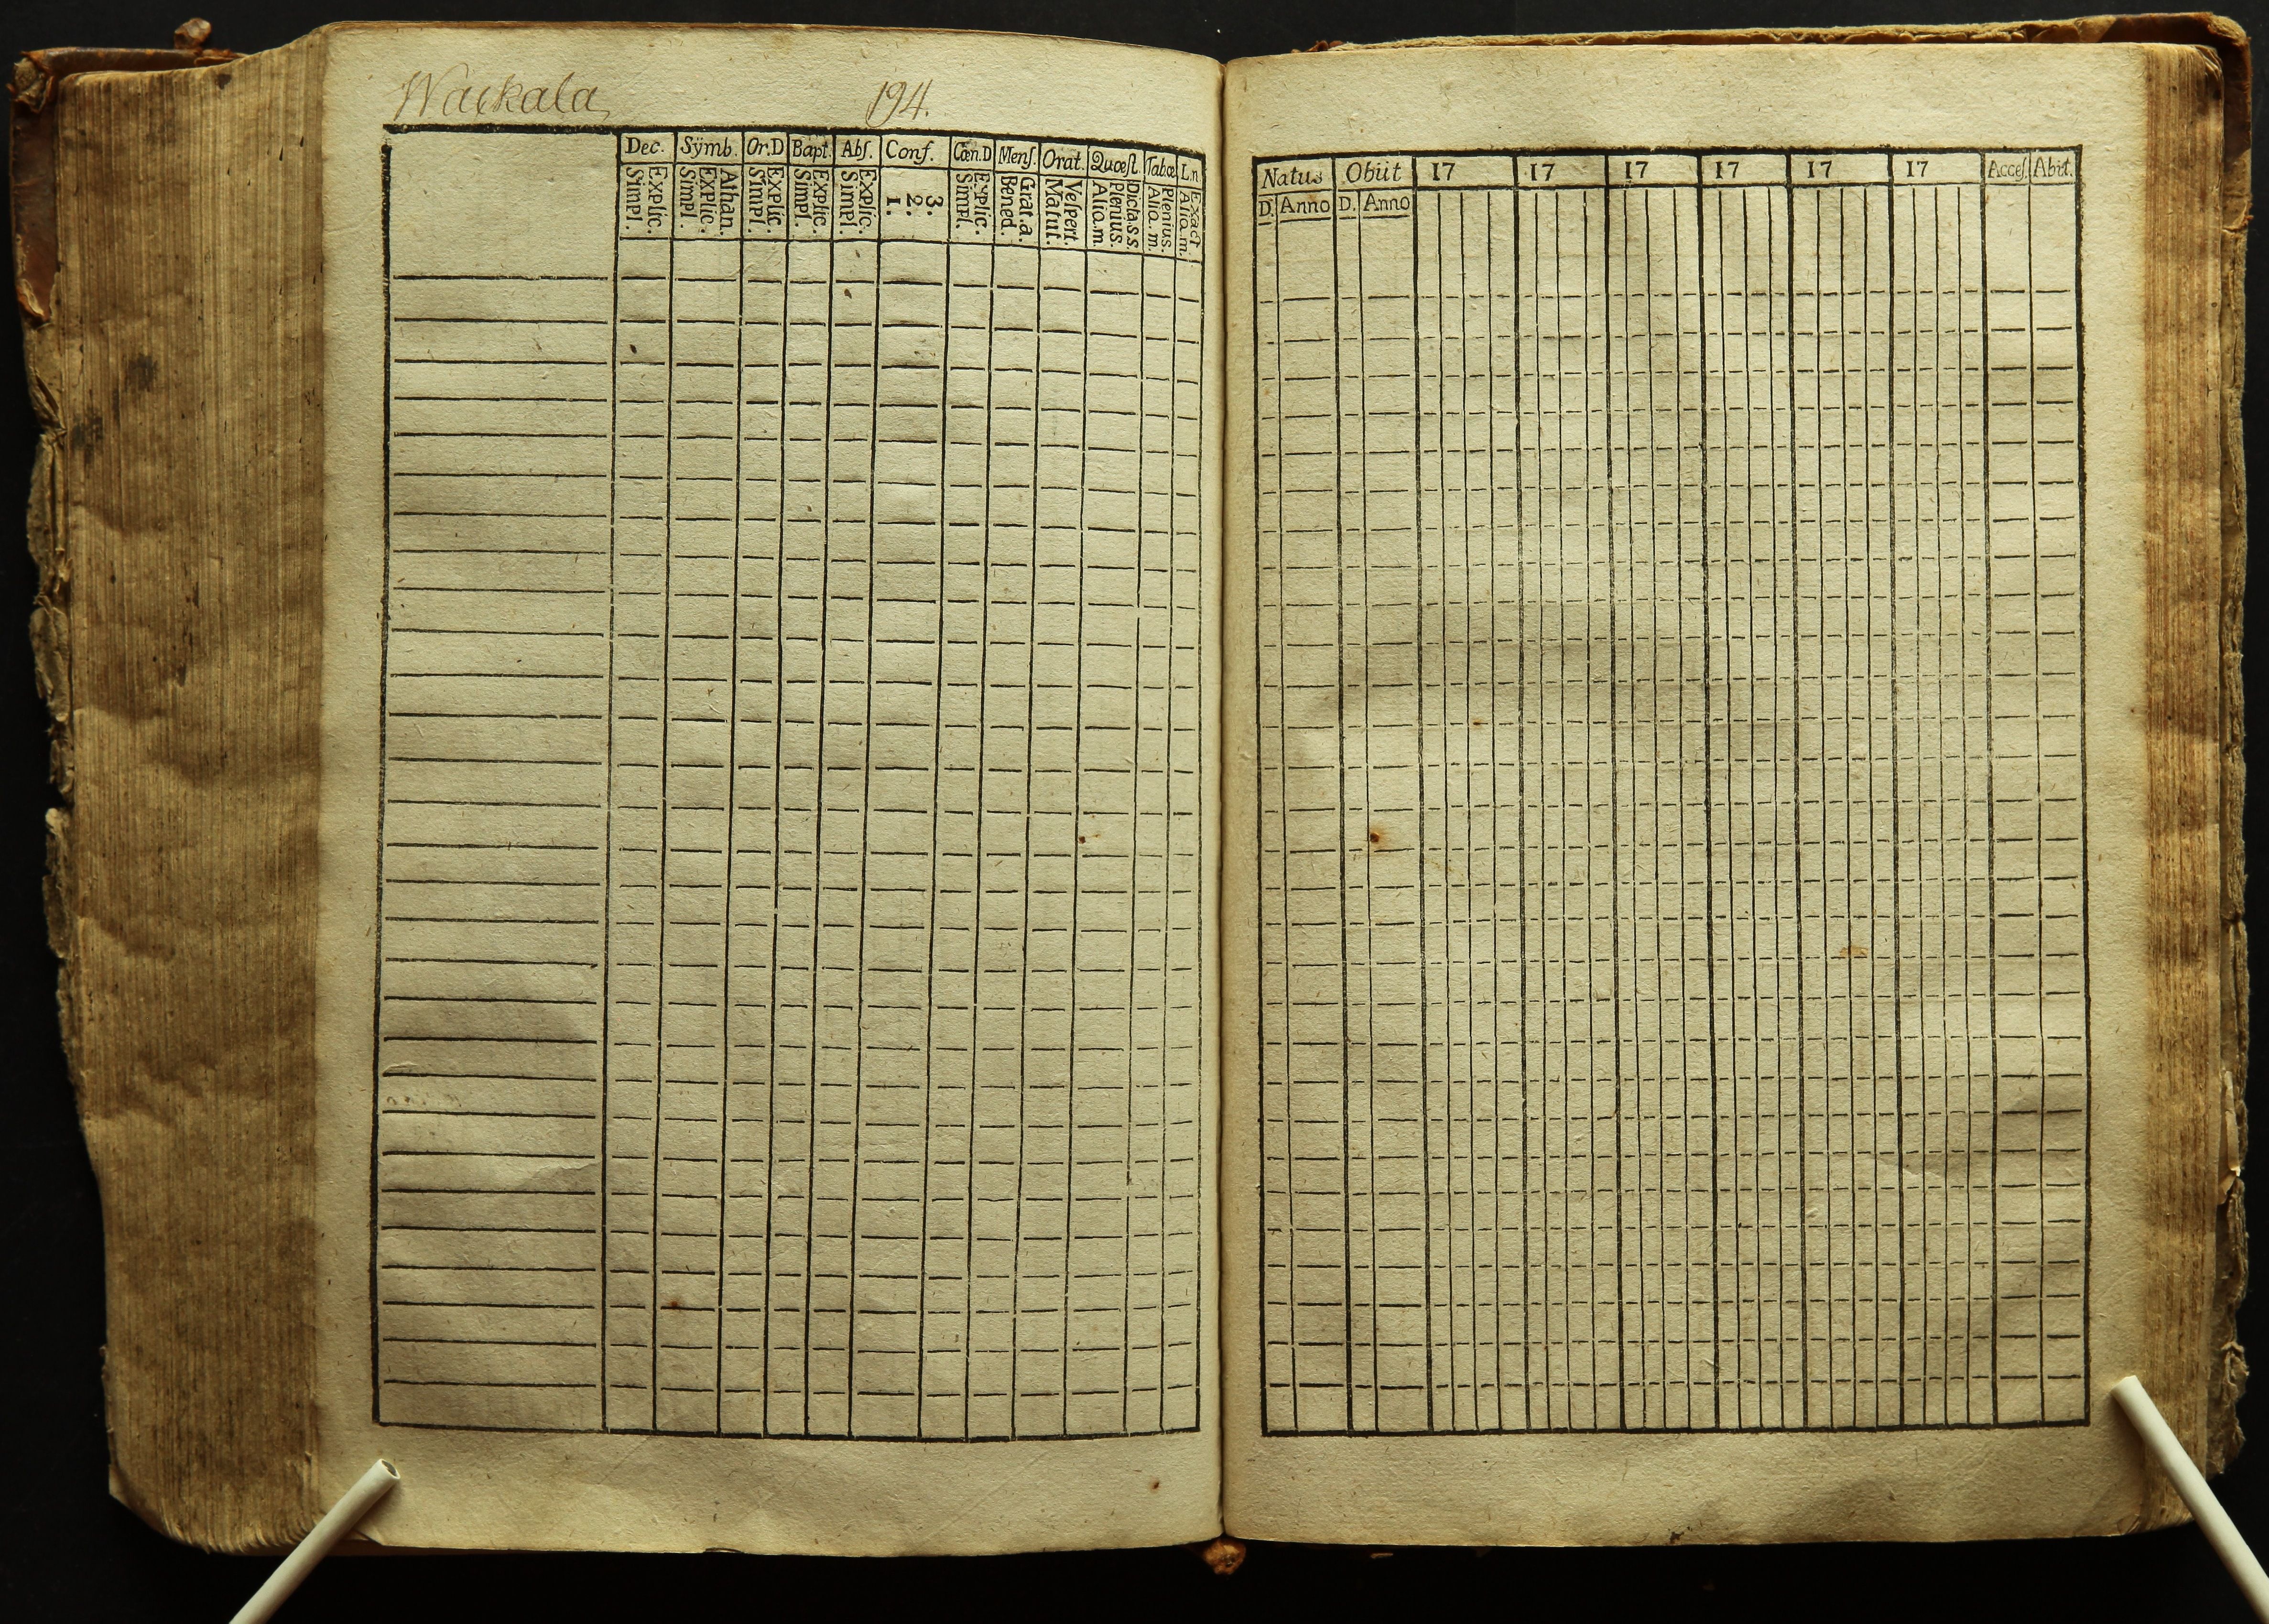 Wackala 194.
Dec. Sÿmb. Or.D Bapt. Abſ. Conf. Cœn.D Menſ. Orat. Quœſt. Tab.œ L.n
Simpl. Explic. Simpl. Explic. Athan. Simpl. Explic. Simpl. Explic. Simpl. Explic. 1. 2. 3. Simpl. Explic. Bened. Grat.a. Matut. Veſpert. Alia.m. Plenius. Dicta.s.s. Alia.m. Plenius. Alia.m. Exact
Natus Obiit 17 17 17 17 17 17 Acceſ. Abiit.
D. Anno D. Anno